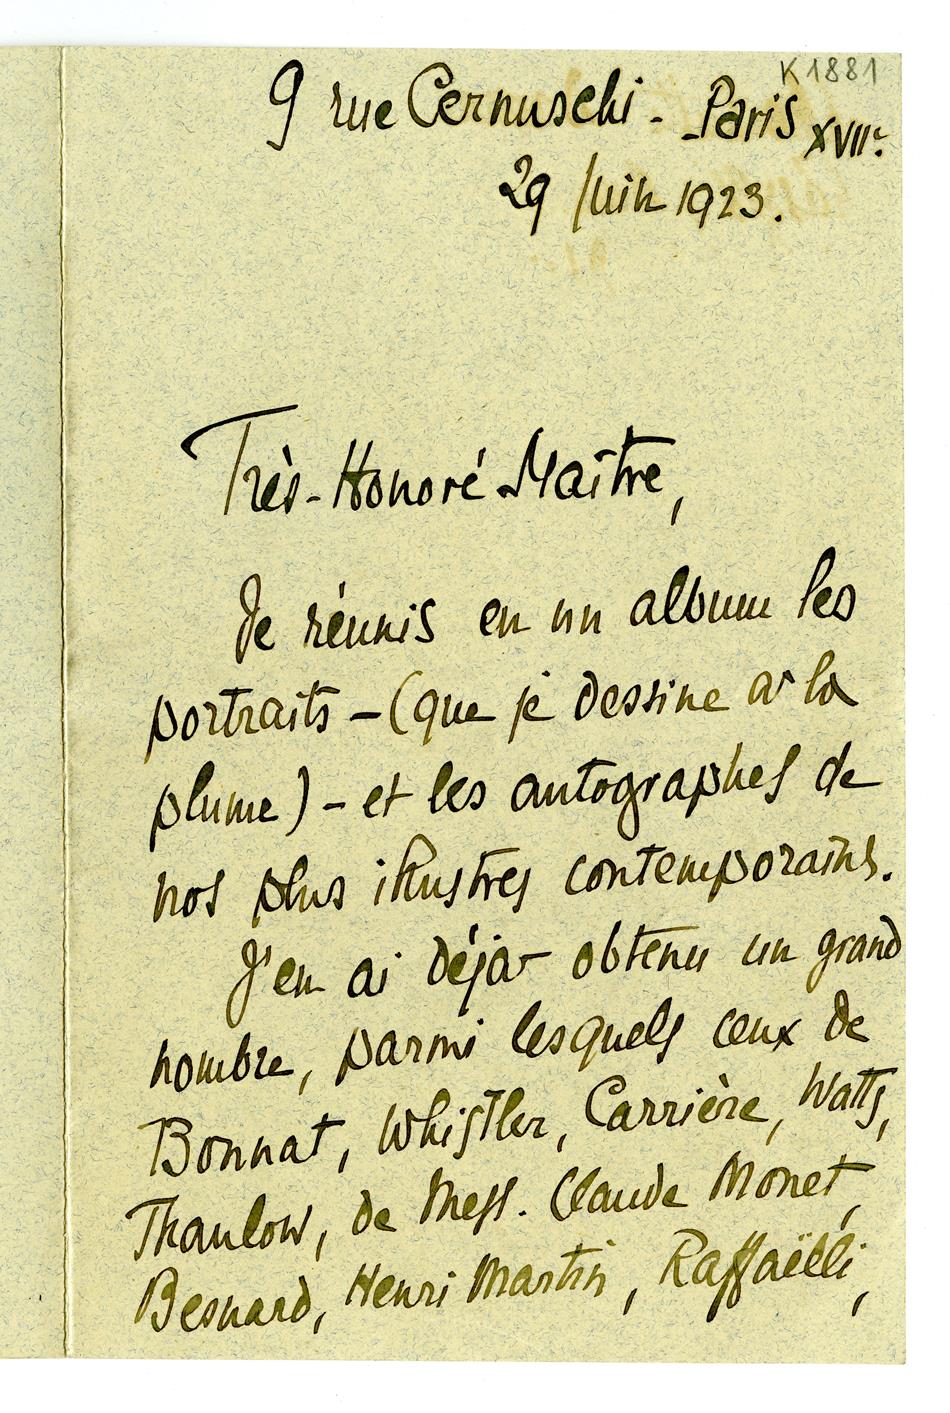 K1881
9 rue Cernuschi - Paris XVIIe.
29 Juin 1923.
Très-Honoré Maître,
Je réunis en un album les
portraits - (que je dessine à la
plume) - et les autographes de
nos plus illustres contemporains.
J'en ai déjà obtenu un grand
nombre, parmi lesquels ceux de
Bonnat, Whistler, Carrière, Watts,
Thaulow, de MessS. Claude Monet,
Besnard, Henri Martin, Raffaëlli,